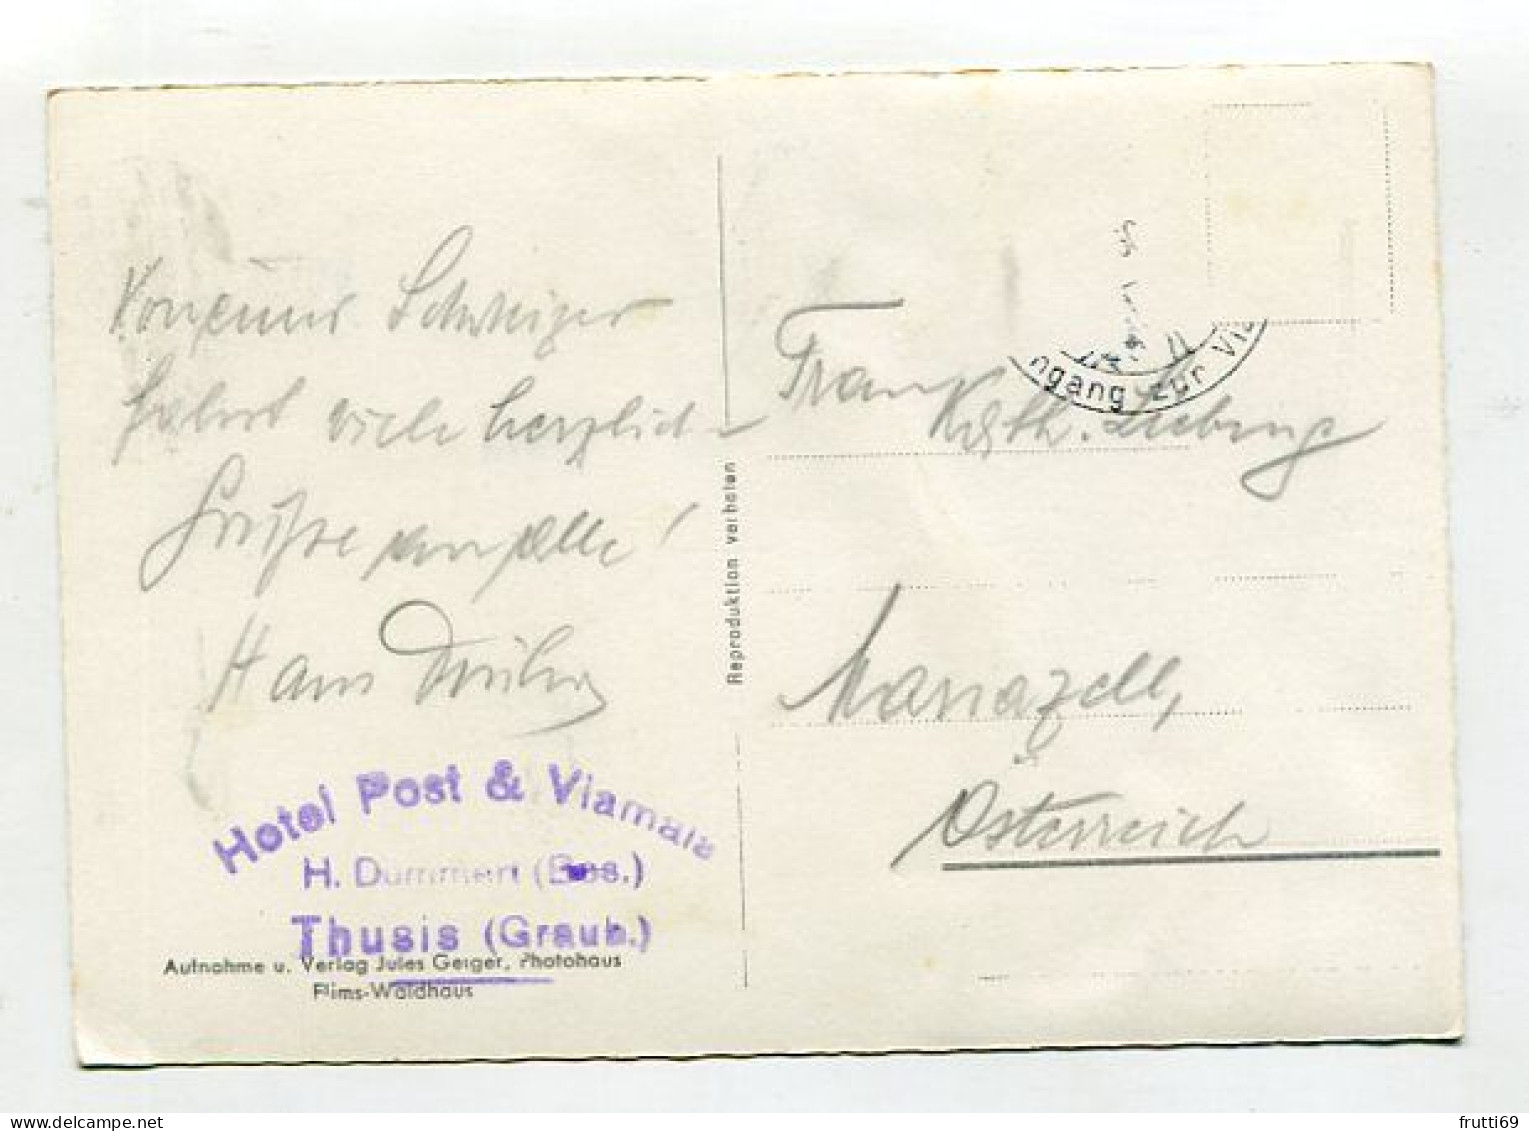 Von einer Schweizer
fahrt viele herzliche
Grüsse an alle!
Hans
Hotel Post & Viamala
H. Dummert (Bes.)
Thusis (Graub.)
Aufnahme u. Verlag Jules Geiger, Photohaus
Flims-Waldhaus
Reproduktion verboten
ngang zur Via
Frau
Käth.
Mariazell,
Österreich
frutti69